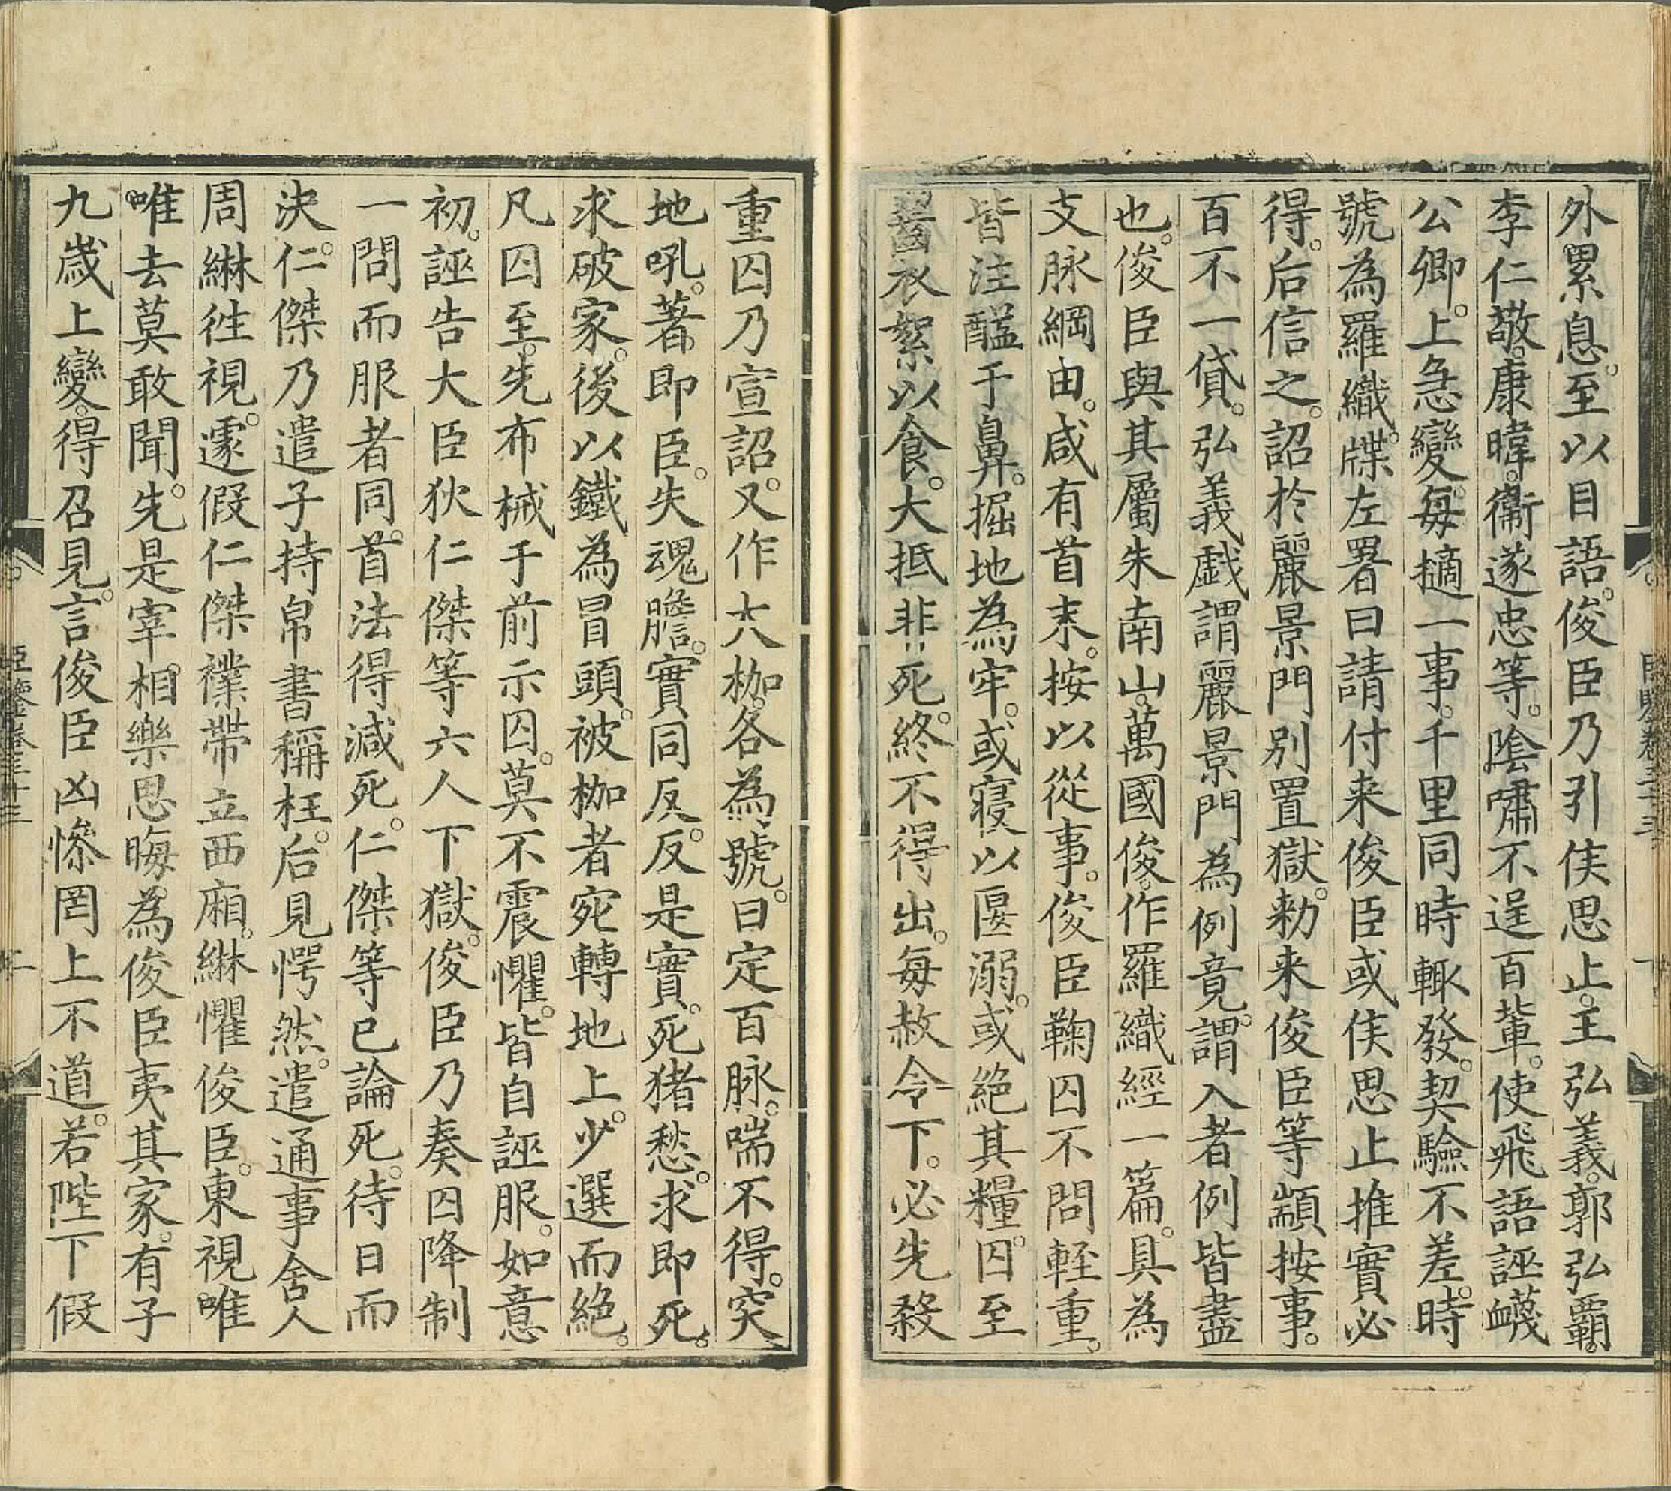 外累息。至以目語。俊臣乃引侯思止。王弘義。郭弘霸。
李仁敬。康暐。衞遂忠等。陰嘯不逞百輩。使飛語誣衊
公卿。上急變。每擿一事。千里同時輒發。契驗不差。時
號為羅織。牒左署曰請付来俊臣或侯思止推實必
得。后信之。詔於麗景門別置獄。勑来俊臣等顓按事。
百不一貸。弘義戲謂麗景門為例竟。謂入者例皆盡
也。俊臣與其屬朱南山。萬國俊。作羅織經一篇。具為
支脉綱由。咸有首末。按以從事。俊臣鞠囚不問輕重。
皆注醯于鼻。掘地為牢。或寢以匽溺。或絕其糧。囚至
齧衣絮以食。大抵非死。終不得出。每赦令下。必先殺
重囚乃宣詔。又作大枷。各為號。曰定百脉。喘不得。突
地吼。著即臣。失魂膽。實同反。反是實。死猪愁。求即死。
求破家。後以鐵為冒頭。被枷者宛轉地上。少選而絕。
凡囚至。先布械于前示囚。莫不震懼。皆自誣服。如意
初。誣告大臣狄仁傑等六人下獄。俊臣乃奏囚降制
一問而服者同。首法得減死。仁傑等已論死。待日而
決。仁傑乃遣子持帛書稱枉。后見愕然。遣通事舍人
周綝徃視。遽假仁傑襆帶立西廂。綝懼俊臣。東視唯
唯去莫敢聞。先是宰相樂思晦。為俊臣夷其家。有子
九歲上變。得召見。言俊臣凶慘罔上不道。若陛下假